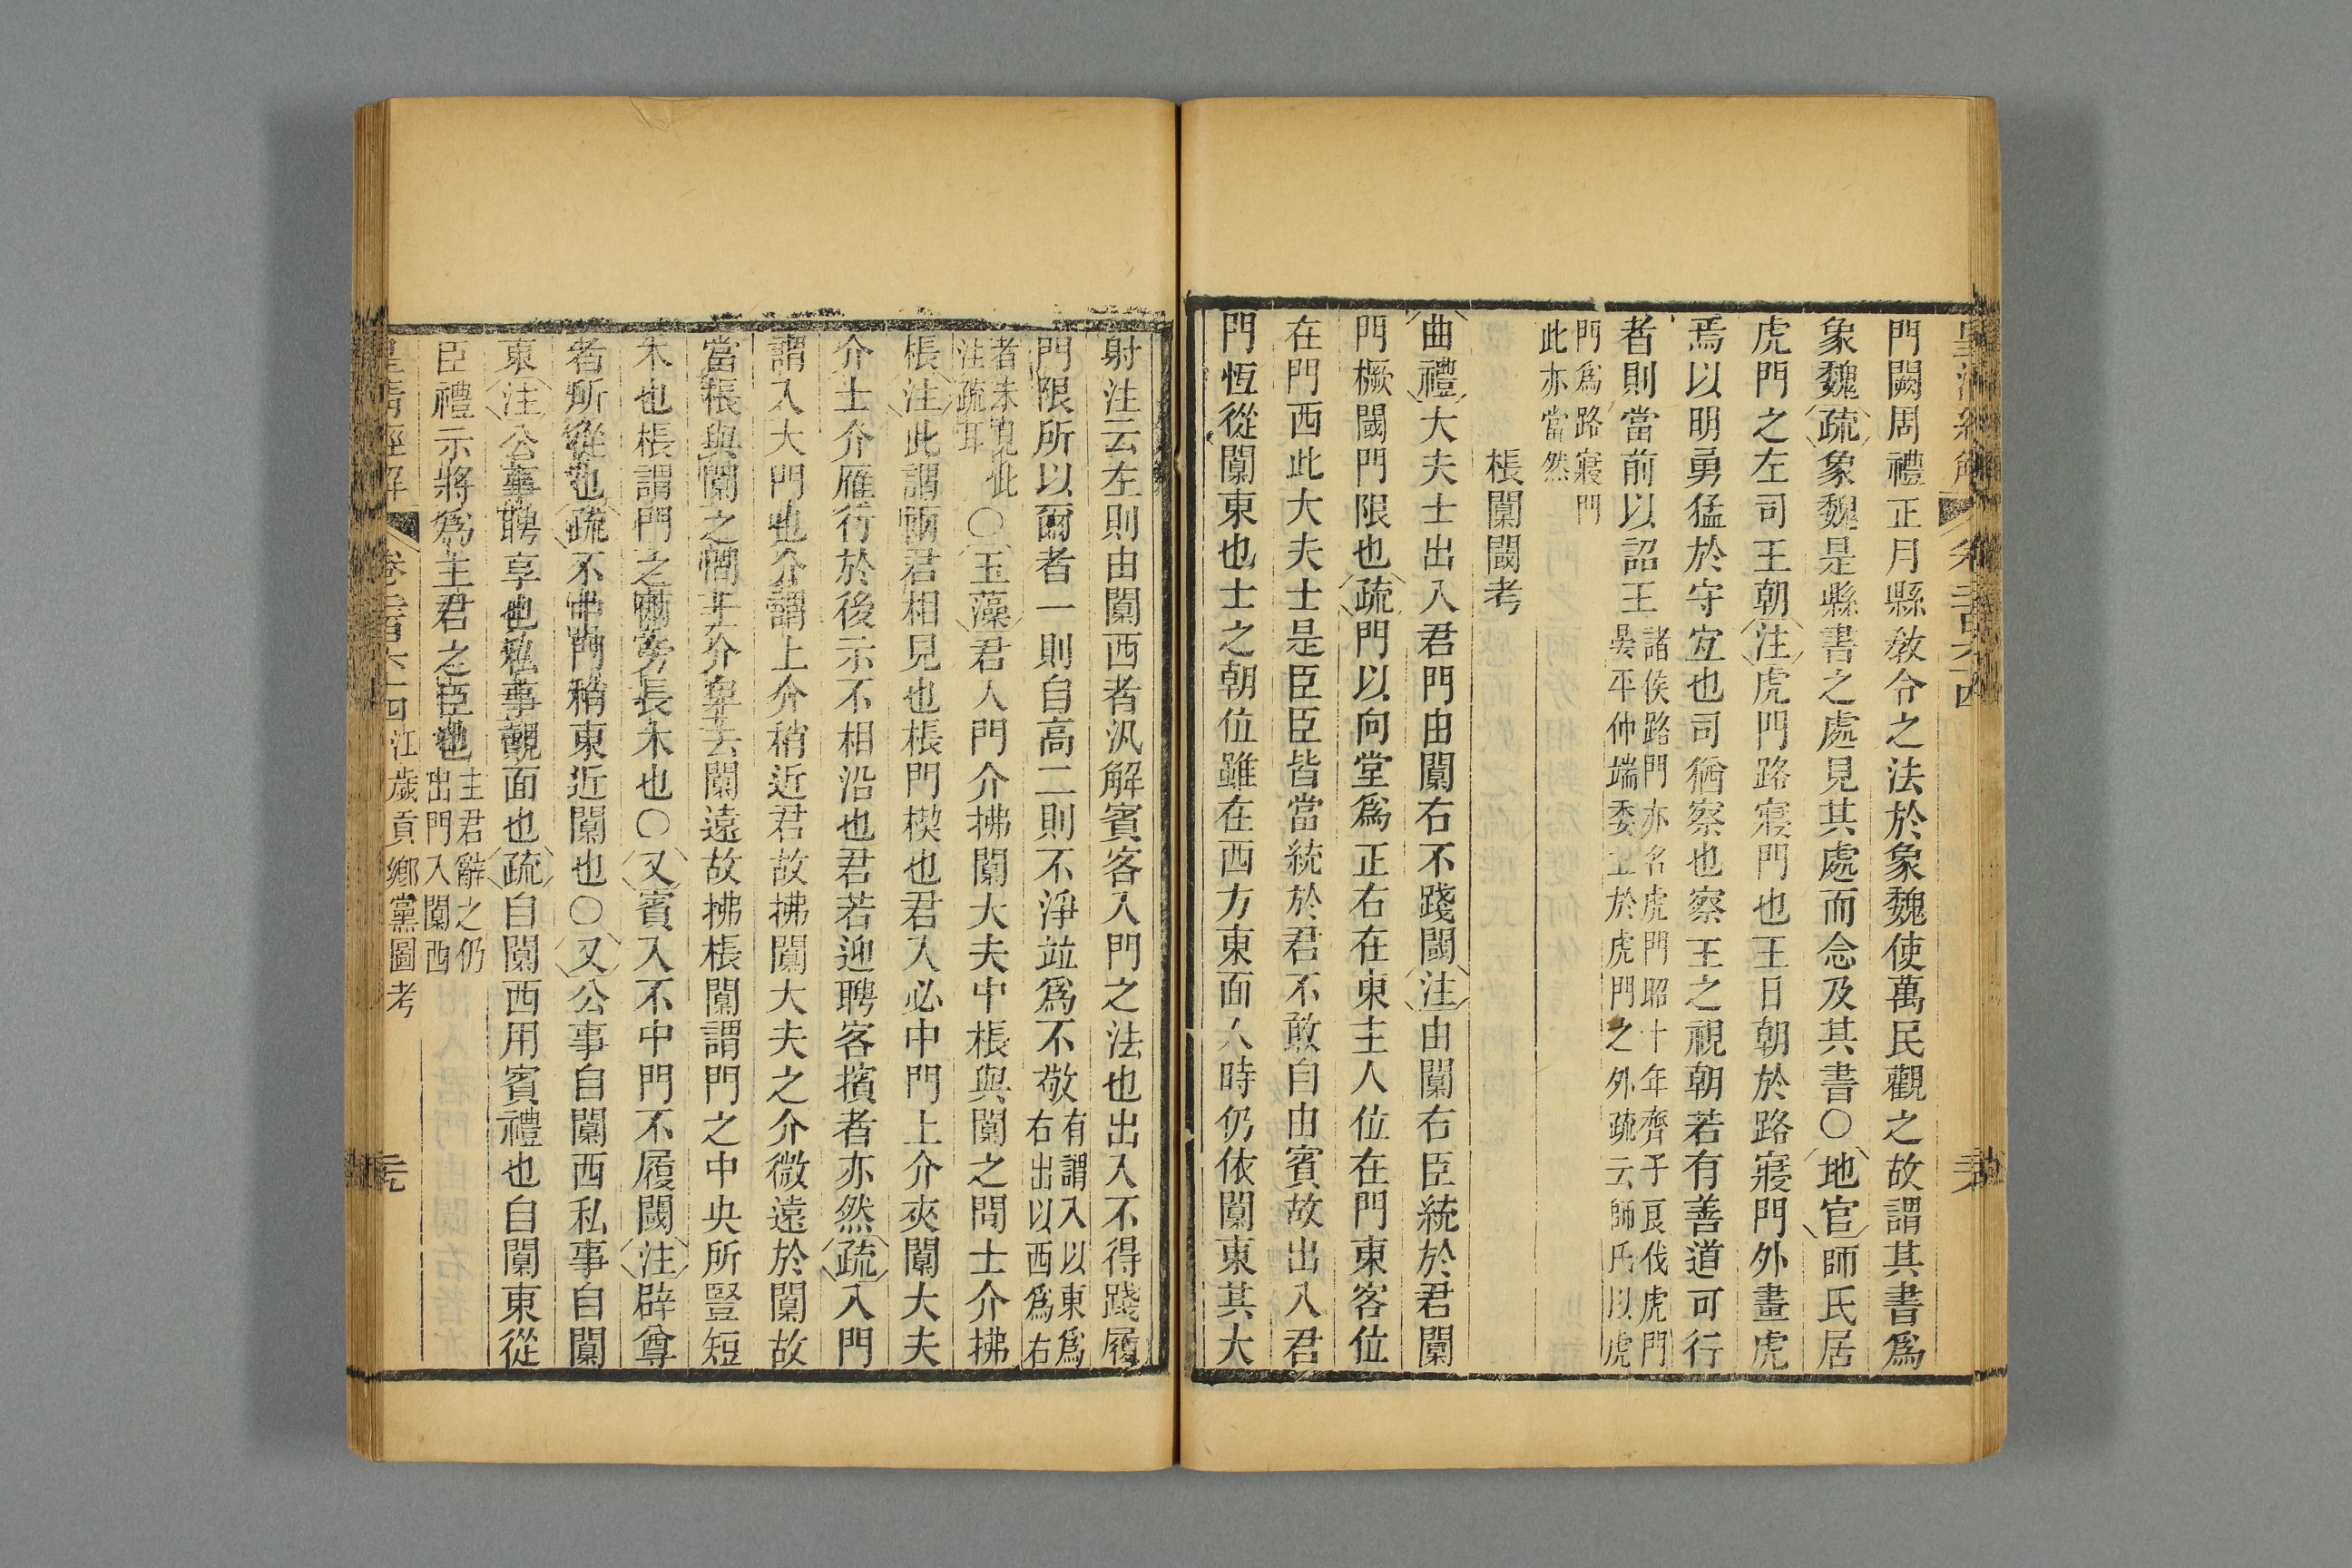 門闕周禮正月縣敎令之法於象魏使萬民觀之故謂其書爲
象魏疏象魏是縣書之處見其處而念及其書〇地官師氏居
虎門之左司王朝注虎門路寢門也王日朝於路寢門外畫虎
焉以明勇猛於守宜也司猶察也察王之視朝若有善道可行
者則當前以詔王諸侯路門亦名虎門昭十年齊子良伐虎門
晏平仲端委立於虎門之外疏云師氏以虎
門爲路寢門
此亦當然
棖闑閾考
曲禮大夫士出入君門由闑右不踐閾注由闑右臣統於君闑
門橛閾門限也疏門以向堂爲正右在東主人位在門東客位
在門西此大夫士是臣臣皆當統於君不敢自由賓故出入君
門恆從闑東也士之朝位雖在西方東面入時仍依闑東其大
射注云左則由闑西者汎解賓客入門之法也出入不得踐履
門限所以爾者一則自高二則不淨竝爲不敬有謂入以東爲
右出以西爲右
者未見此
注疏耳〇玉藻君入門介拂闑大夫中棖與闑之間士介拂
棖注此謂兩君相見也棖門楔也君入必中門上介夾闑大夫
介士介雁行於後示不相沿也君若迎聘客擯者亦然疏入門
謂入大門也介謂上介稍近君故拂闑大夫之介微遠於闑故
當棖與闑之間士介卑去闑遠故拂棖闑謂門之中央所豎短
木也棖謂門之兩旁長木也〇又賓入不中門不履閾注辟尊
者所從也疏不中門稍東近闑也〇又公事自闑西私事自闑
東注公事聘享也私事覿面也疏自闑西用賓禮也自闑東從
臣禮示將爲主君之臣也主君辭之仍
出門入闑西
皇清經解 卷二百六十四 江歲貢鄉黨圖考 元